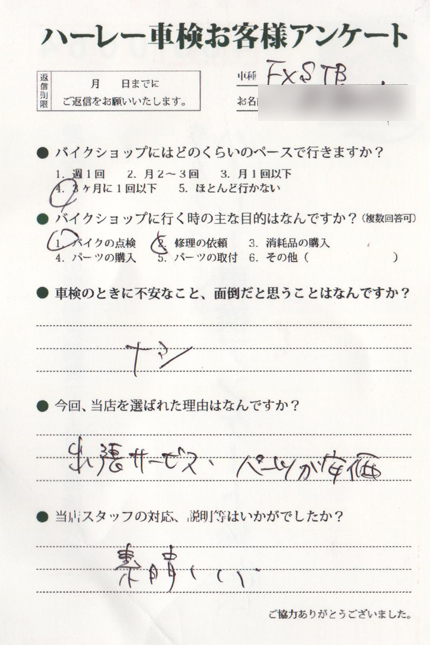 ハーレー車検お客様アンケート
返信期限
月　日までに
ご返信をお願いいたします。
車種 FXSTB
お名前
● バイクショップにはどのくらいのペースで行きますか？
1. 週1回　2. 月2〜3回　3. 月1回以下
4. 3ヶ月に1回以下　5. ほとんど行かない
● バイクショップに行く時の主な目的はなんですか？（複数回答可）
1. バイクの点検　2. 修理の依頼　3. 消耗品の購入
4. パーツの購入　5. パーツの取付　6. その他（　　　）
● 車検のときに不安なこと、面倒だと思うことはなんですか？
ナシ
● 今回、当店を選ばれた理由はなんですか？
出張サービス、パーツが安価
● 当店スタッフの対応、説明等はいかがでしたか？
素晴しい
ご協力ありがとうございました。